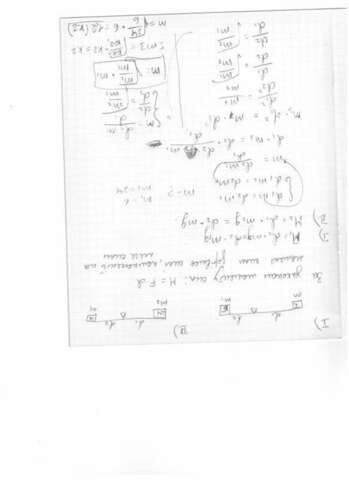 I) II)
d₁ d₂ d₁ d₂
m m₁ m₂ m
За законом моменту сили: M = F·d
момент сили дорівнює силі, помноженій на
плече сили
I) M₁ = d₁·mg = d₂·m₁g
II) M₂ = d₁·m₂g = d₂·mg
d₁m = d₂m₁
d₁m₂ = d₂m
m - ? m₁ = 6
m₂ = 24
m = d₂m₁/d₁
d₁·m₂ = d₂·d₂ m₁/d₁
m₂·d₁² = m₁·d₂²
d₁²/d₂² = m₁/m₂
d₁/d₂ = √m₁/m₂
d₂/d₁ = √m₂/m₁
m = d₂m₁/d₁
d₂/d₁ = √m₂/m₁
m = √m₂/m₁ · m₁
[m] = √кг/кг · кг = кг
m = √24/6 · 6 = 12 (кг)